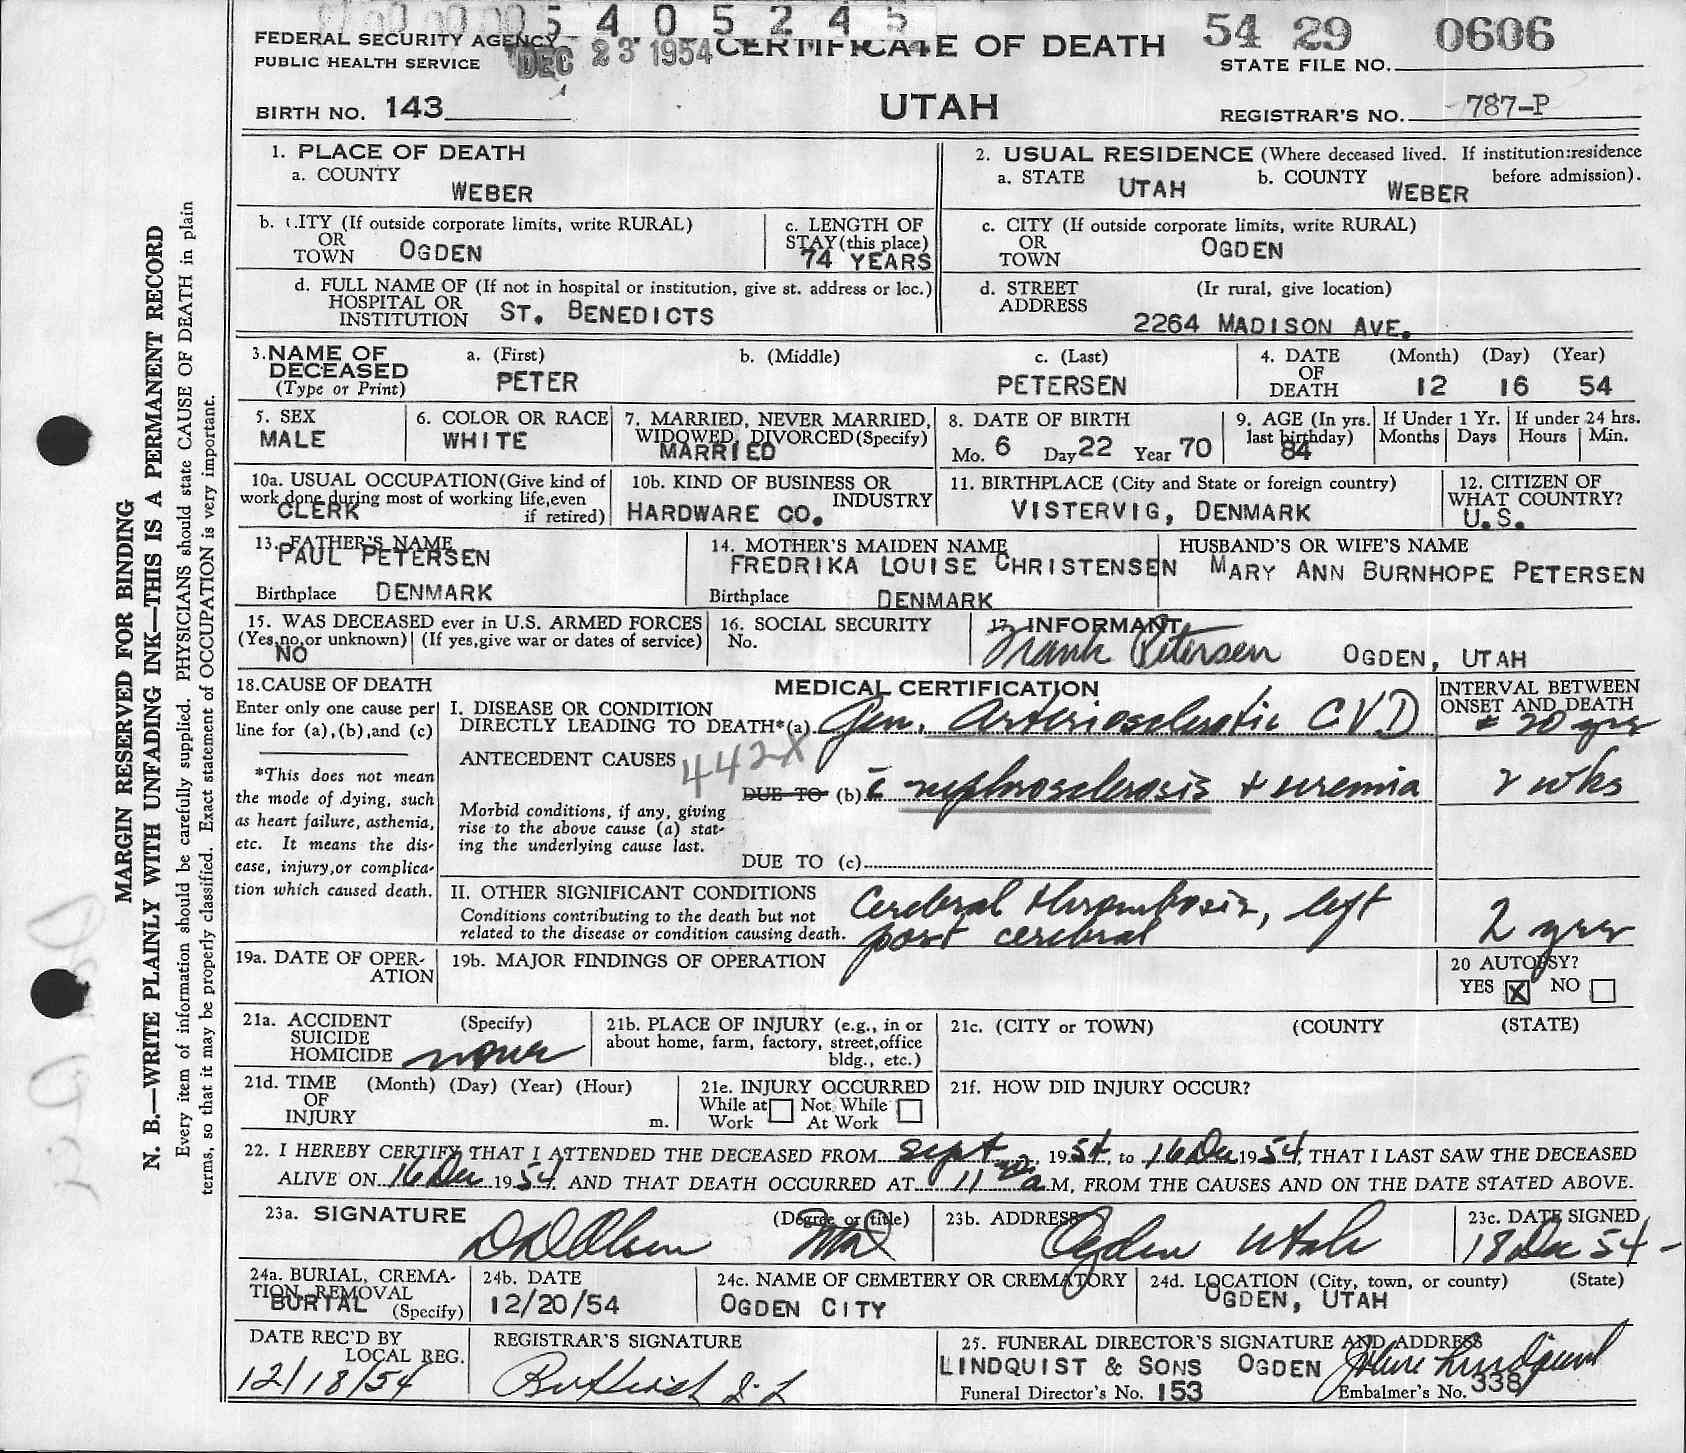 5 4 0 5 2 4 5
FEDERAL SECURITY AGENCY
PUBLIC HEALTH SERVICE
DEC 23 1954
CERTIFICATE OF DEATH
54 29 0606
STATE FILE NO.
BIRTH NO. 143
UTAH
REGISTRAR'S NO. 787-P
MARGIN RESERVED FOR BINDING
N. B.—WRITE PLAINLY WITH UNFADING INK—THIS IS A PERMANENT RECORD
Every item of information should be carefully supplied. PHYSICIANS should state CAUSE OF DEATH in plain
terms, so that it may be properly classified. Exact statement of OCCUPATION is very important.
1. PLACE OF DEATH
a. COUNTY
WEBER
2. USUAL RESIDENCE (Where deceased lived. If institution:residence
before admission).
a. STATE UTAH b. COUNTY WEBER
b. CITY (If outside corporate limits, write RURAL)
OR
TOWN OGDEN
c. LENGTH OF
STAY (this place)
74 YEARS
c. CITY (If outside corporate limits, write RURAL)
OR
TOWN
OGDEN
d. FULL NAME OF (If not in hospital or institution, give st. address or loc.)
HOSPITAL OR
INSTITUTION ST. BENEDICTS
d. STREET (Ir rural, give location)
ADDRESS
2264 MADISON AVE.
3. NAME OF
DECEASED
(Type or Print)
a. (First) b. (Middle) c. (Last)
PETER PETERSEN
4. DATE
OF
DEATH
(Month) (Day) (Year)
12 16 54
5. SEX
MALE
6. COLOR OR RACE
WHITE
7. MARRIED, NEVER MARRIED,
WIDOWED, DIVORCED (Specify)
MARRIED
8. DATE OF BIRTH
Mo. 6 Day 22 Year 70
9. AGE (In yrs.
last birthday)
84
If Under 1 Yr.
Months Days
If under 24 hrs.
Hours Min.
10a. USUAL OCCUPATION (Give kind of
work done during most of working life, even
if retired)
CLERK
10b. KIND OF BUSINESS OR
INDUSTRY
HARDWARE CO.
11. BIRTHPLACE (City and State or foreign country)
VISTERVIG, DENMARK
12. CITIZEN OF
WHAT COUNTRY?
U.S.
13. FATHER'S NAME
PAUL PETERSEN
Birthplace DENMARK
14. MOTHER'S MAIDEN NAME
FREDRIKA LOUISE CHRISTENSEN
Birthplace DENMARK
HUSBAND'S OR WIFE'S NAME
MARY ANN BURNHOPE PETERSEN
15. WAS DECEASED ever in U.S. ARMED FORCES
(Yes, no, or unknown) (If yes, give war or dates of service)
NO
16. SOCIAL SECURITY
No.
17. INFORMANT
Frank Petersen OGDEN, UTAH
18. CAUSE OF DEATH
Enter only one cause per
line for (a), (b), and (c)
*This does not mean
the mode of dying, such
as heart failure, asthenia,
etc. It means the dis-
ease, injury, or complica-
tion which caused death.
MEDICAL CERTIFICATION
INTERVAL BETWEEN
ONSET AND DEATH
I. DISEASE OR CONDITION
DIRECTLY LEADING TO DEATH* (a) Gen. Arteriosclerotic CVD
20 yrs
ANTECEDENT CAUSES 442X
DUE TO (b) c̄ nephrosclerosis + uremia
2 wks
Morbid conditions, if any, giving
rise to the above cause (a) stat-
ing the underlying cause last.
DUE TO (c)
II. OTHER SIGNIFICANT CONDITIONS
Conditions contributing to the death but not
related to the disease or condition causing death.
Cerebral thrombosis, left
post cerebral
2 yrs
19a. DATE OF OPER-
ATION
19b. MAJOR FINDINGS OF OPERATION
20 AUTOPSY?
YES X NO
21a. ACCIDENT (Specify)
SUICIDE
HOMICIDE none
21b. PLACE OF INJURY (e.g., in or
about home, farm, factory, street, office
bldg., etc.)
21c. (CITY or TOWN) (COUNTY (STATE)
21d. TIME (Month) (Day) (Year) (Hour)
OF
INJURY m.
21e. INJURY OCCURRED
While at Not While
Work At Work
21f. HOW DID INJURY OCCUR?
22. I HEREBY CERTIFY THAT I ATTENDED THE DECEASED FROM Sept 1954, to 16 Dec 1954, THAT I LAST SAW THE DECEASED
ALIVE ON 16 Dec 1954. AND THAT DEATH OCCURRED AT 11 20 a M, FROM THE CAUSES AND ON THE DATE STATED ABOVE.
23a. SIGNATURE (Degree or title)
D D Olsen MD
23b. ADDRESS
Ogden Utah
23c. DATE SIGNED
18 Dec 54
24a. BURIAL, CREMA-
TION, REMOVAL
(Specify)
BURIAL
24b. DATE
12/20/54
24c. NAME OF CEMETERY OR CREMATORY
OGDEN CITY
24d. LOCATION (City, town, or county) (State)
OGDEN, UTAH
DATE REC'D BY
LOCAL REG.
12/18/54
REGISTRAR'S SIGNATURE
25. FUNERAL DIRECTOR'S SIGNATURE AND ADDRESS
LINDQUIST & SONS OGDEN
Funeral Director's No. 153
Embalmer's No. 338